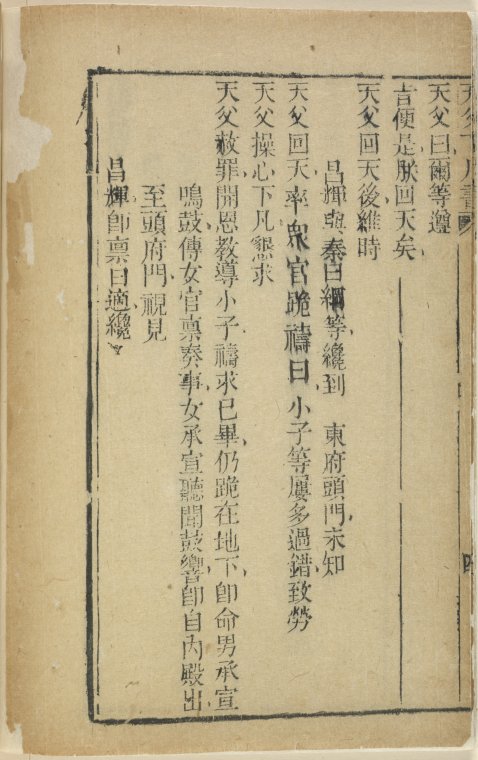 天父曰爾等遵
旨便是朕回天矣
天父回天後維時
昌輝與秦日綱等纔到　東府頭門未知
天父回天率眾官跪禱曰小子等屢多過錯致勞
天父操心下凡懇求
天父赦罪開恩教導小子禱求已畢仍跪在地下卽命男承宣
鳴鼓傳女官稟奏事女承宣聽聞鼓響卽自內殿出
至頭府門視見
昌輝卽稟曰適纔